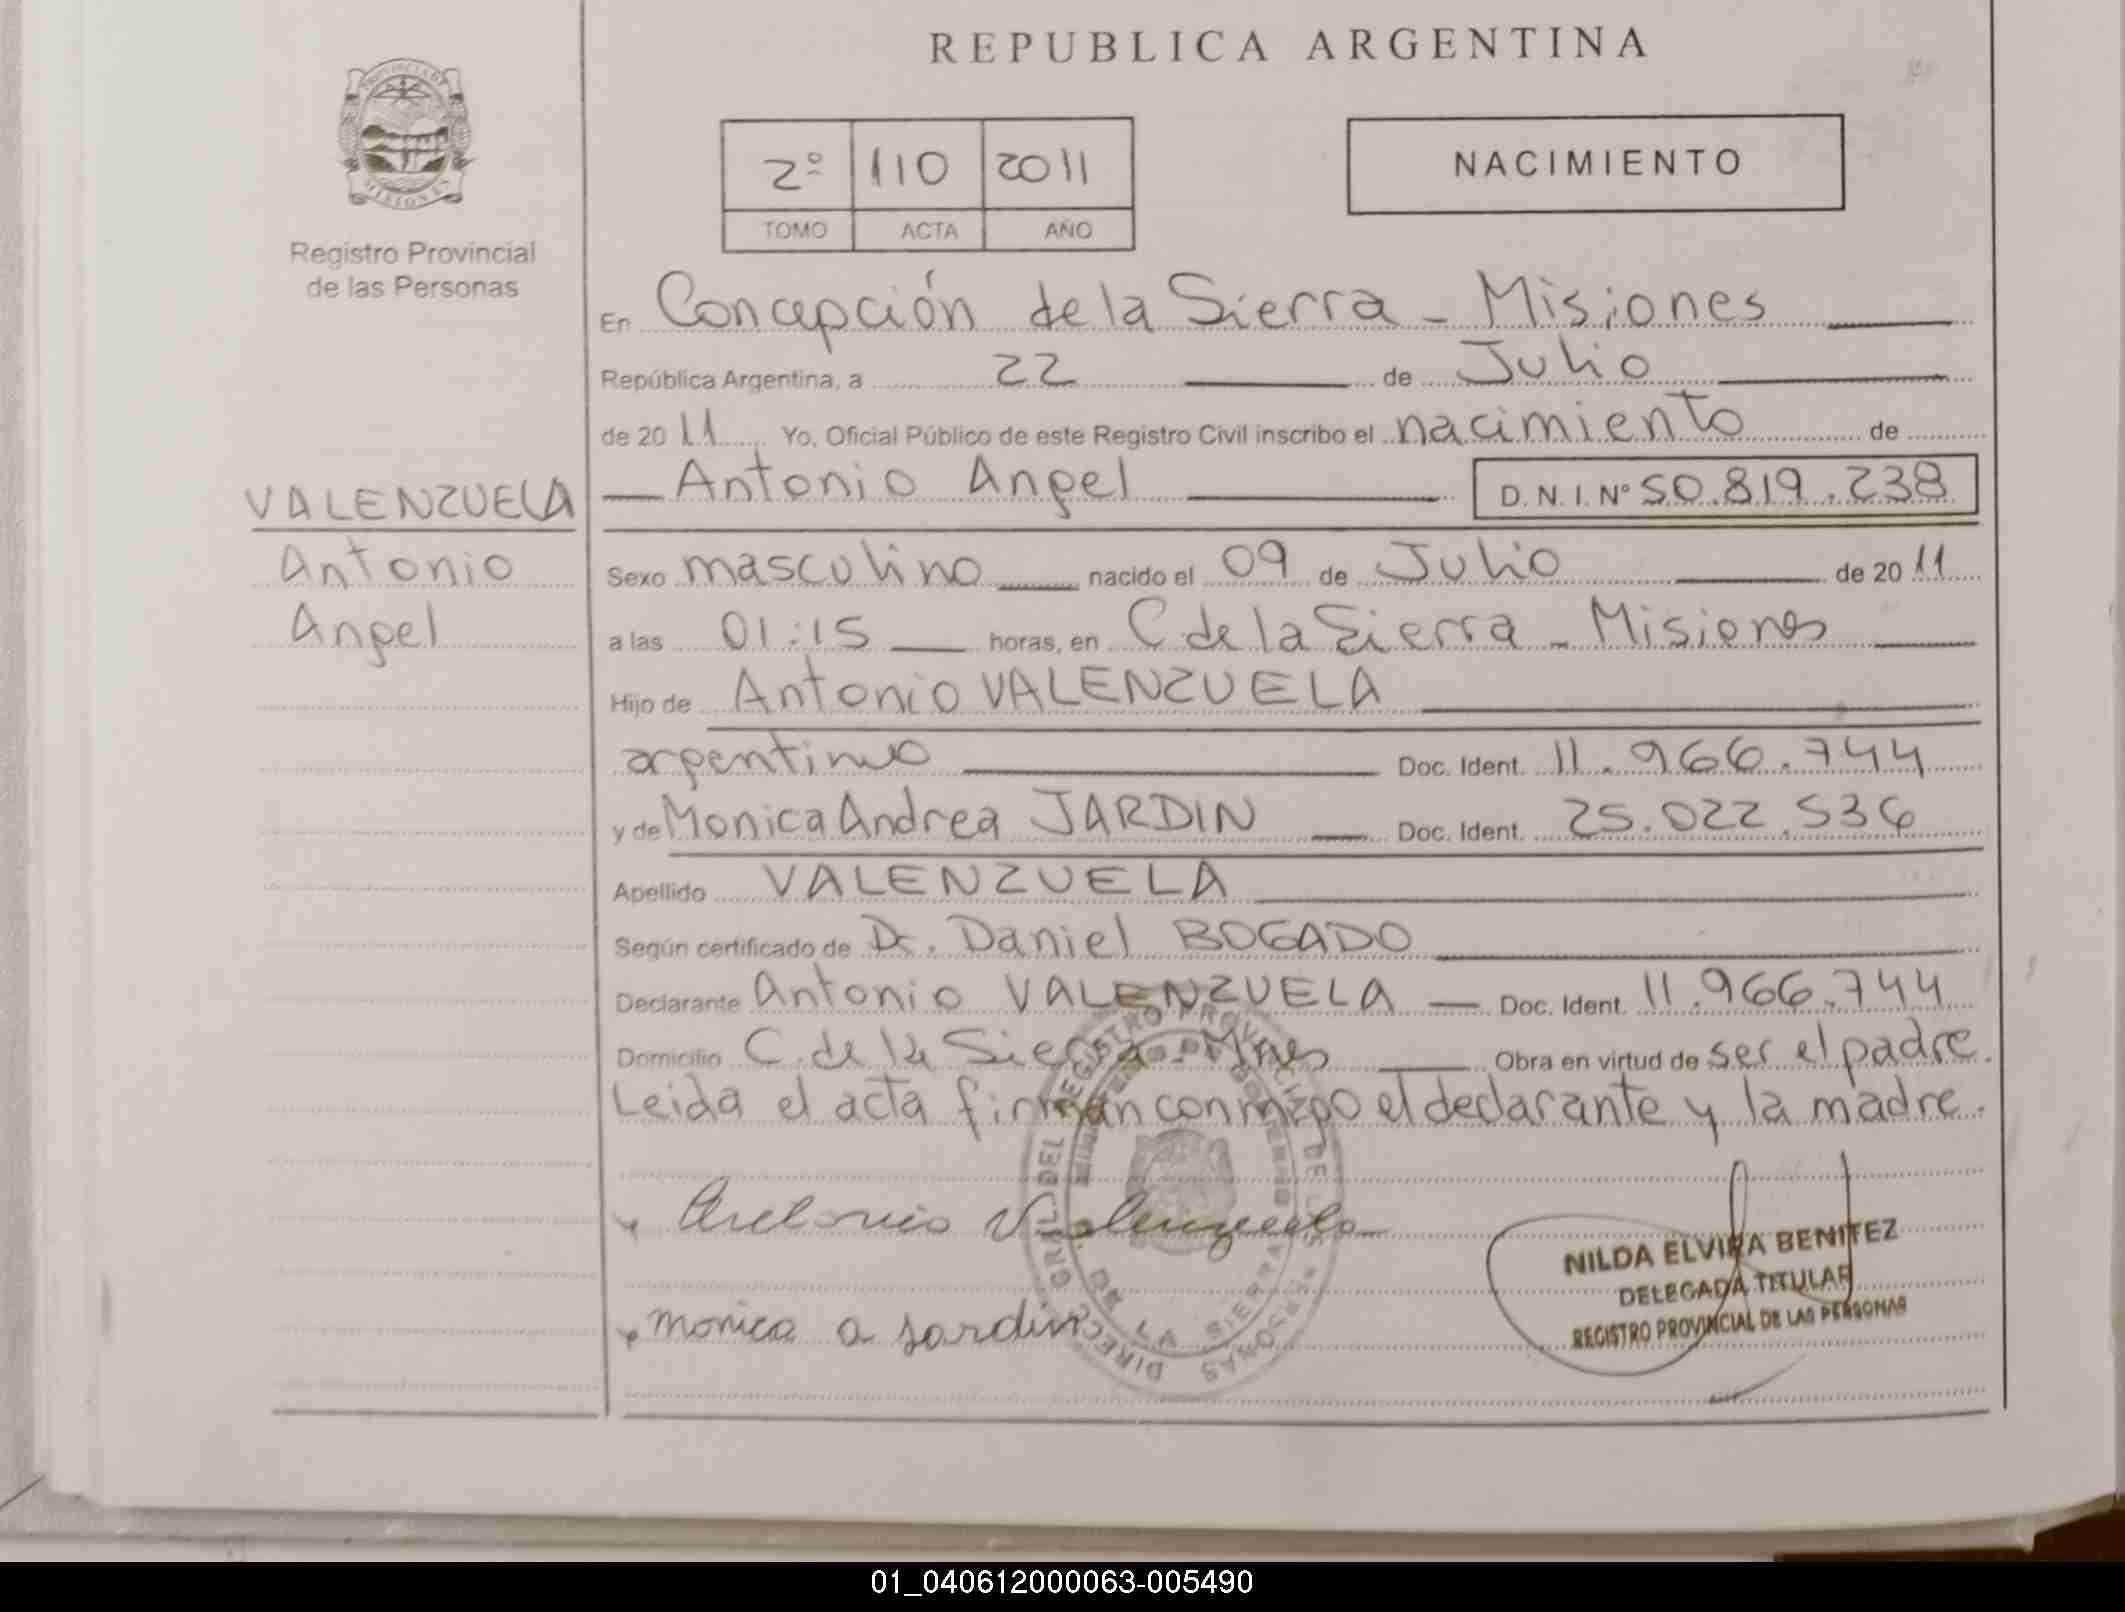 REPUBLICA ARGENTINA
PROVINCIA DE MISIONES
Registro Provincial
de las Personas
2º 110 2011
TOMO ACTA AÑO
NACIMIENTO
En Concepción de la Sierra - Misiones
República Argentina, a 22 de Julio
de 2011 Yo, Oficial Público de este Registro Civil inscribo el nacimiento de
Antonio Angel D.N.I. Nº 50.819.238
VALENZUELA
Antonio
Angel
Sexo masculino nacido el 09 de Julio de 2011
a las 01:15 horas, en C de la Sierra - Misiones
Hijo de Antonio VALENZUELA
argentino Doc. Ident. 11.966.744
y de Monica Andrea JARDIN Doc. Ident. 25.022.536
Apellido VALENZUELA
Según certificado de Dr. Daniel BOGADO
Declarante Antonio VALENZUELA Doc. Ident. 11.966.744
Domicilio C. de la Sierra - Mnes Obra en virtud de ser el padre.
Leida el acta firman conmigo el declarante y la madre.
Antonio Valenzuela
monica a jardin
DIREC. GRAL. DEL REGISTRO PROVINCIAL DE LAS PERSONAS
DE LA SIERRA
NILDA ELVIRA BENITEZ
DELEGADA TITULAR
REGISTRO PROVINCIAL DE LAS PERSONAS
01_040612000063-005490